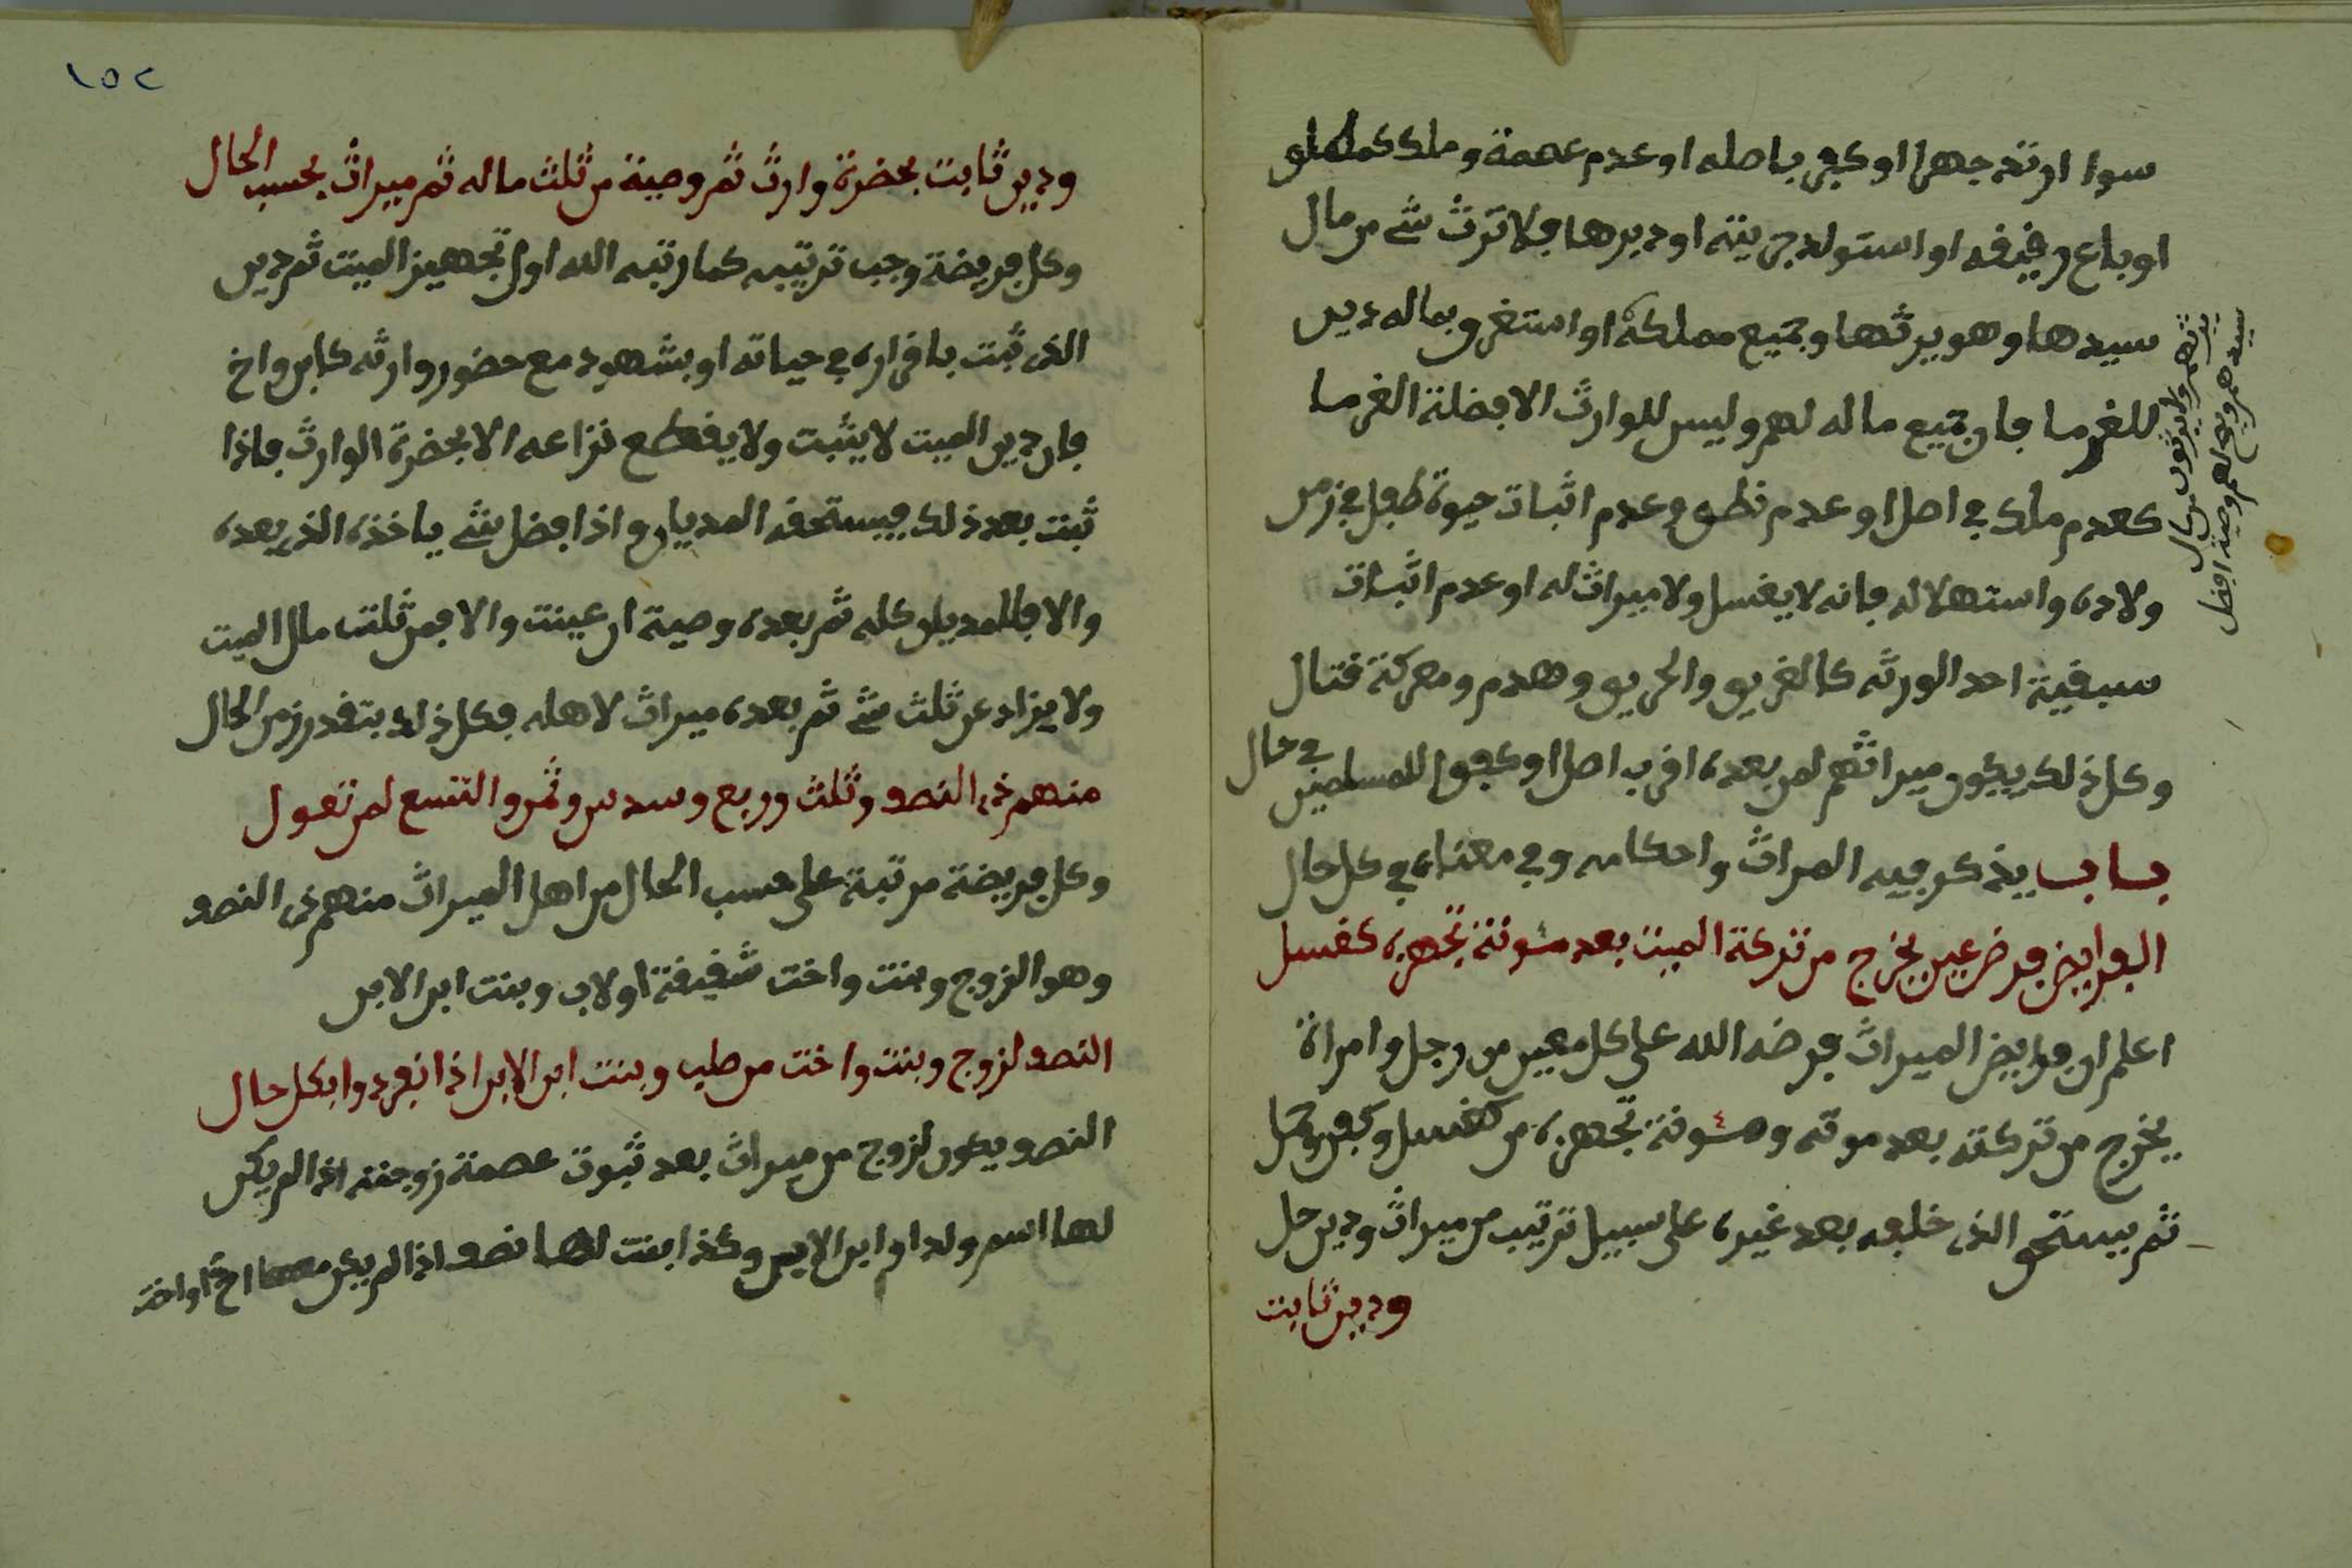 سوا ارتد جهرا او كفر باصله او عدم عصمة وملك كملكملو
او باع رفيفه او استولد جريته او دبرها فلا ترث شے من مال
سيدها وهو يرثها وجميع مملكة او استغرق بماله دين
للغرما فان جميع ماله لهم وليس للوارث الا فضلة الغرما
كعدم ملك في اصل او عدم نطق وعدم اثبات حيوة طفل في زمن
ولاده واستهلاله فانه لا يغسل ولا ميراث له او عدم اثبات
سبقية احد الورثه كالغريق والحريق وهدم ومعركة قتال
وكل ذلك يكون ميراثهم لمن بعده اقرب اصل او كفوا للمسلمين في حال
باب يذكر فيه المراث واحكامه وفي معناه في كل حال
الفرايض فرض عين يخرج من تركة الميت بعد مئونة تجهزه كغسل
اعلم ان فرايض الميراث فرضه الله على كل معين من رجل وامراة
يخرج من تركته بعد موته ومئونة تجهزه من كغسل وكفن وحمل
ثم يستحق الذي خلفه بعد غيره على سبيل ترتيب من ميراث ودين حل
ودين ثابت
يرثهم ولا يرثون من كل
سيدهم وبع لهم وصية افضل
١٥٢
ودين ثابت بحضرة وارث ثم وصية من ثلث ماله ثم ميراث بحسب الحال
وكل فريضة وجب ترتيبه كما رتبه الله اول تجهيز الميت ثم دين
الذي ثبت باقراره في حياته او بشهود مع حضور وارثه كابن واخ
فان دين الميت لا يثبت ولا يقطع نزاعه الا بحضرة الوارث فاذا
ثبت بعد ذلك فيستحقه المديان واذا فضل شے ياخذه الذي بعده
والا فللمديان كله ثم بعده وصية ان عينت والا فمن ثلث مال الميت
ولا يزاد عن ثلث شے ثم بعده ميراث لاهله فكل ذلك بتقدر زمن الحال
منهم ذي النصف وثلث وربع وسدس وثمن والتسع لمن تعول
وكل فريضة مرتبة على حسب الحال من اهل الميراث منهم ذي النصف
وهو الزوج وبنت واخت شقيقة او لاب وبنت ابن الابن
النصف لزوج وبنت واخت من صلب وبنت ابن الابن اذا انفردوا بكل حال
النصف يكون لزوج من ميراث بعد ثبوت عصمة زوجته اذا لم يكن
لها اسم ولد او ابن الابن وكذا بنت لها نصف اذا لم يكن معها اخ او اخت